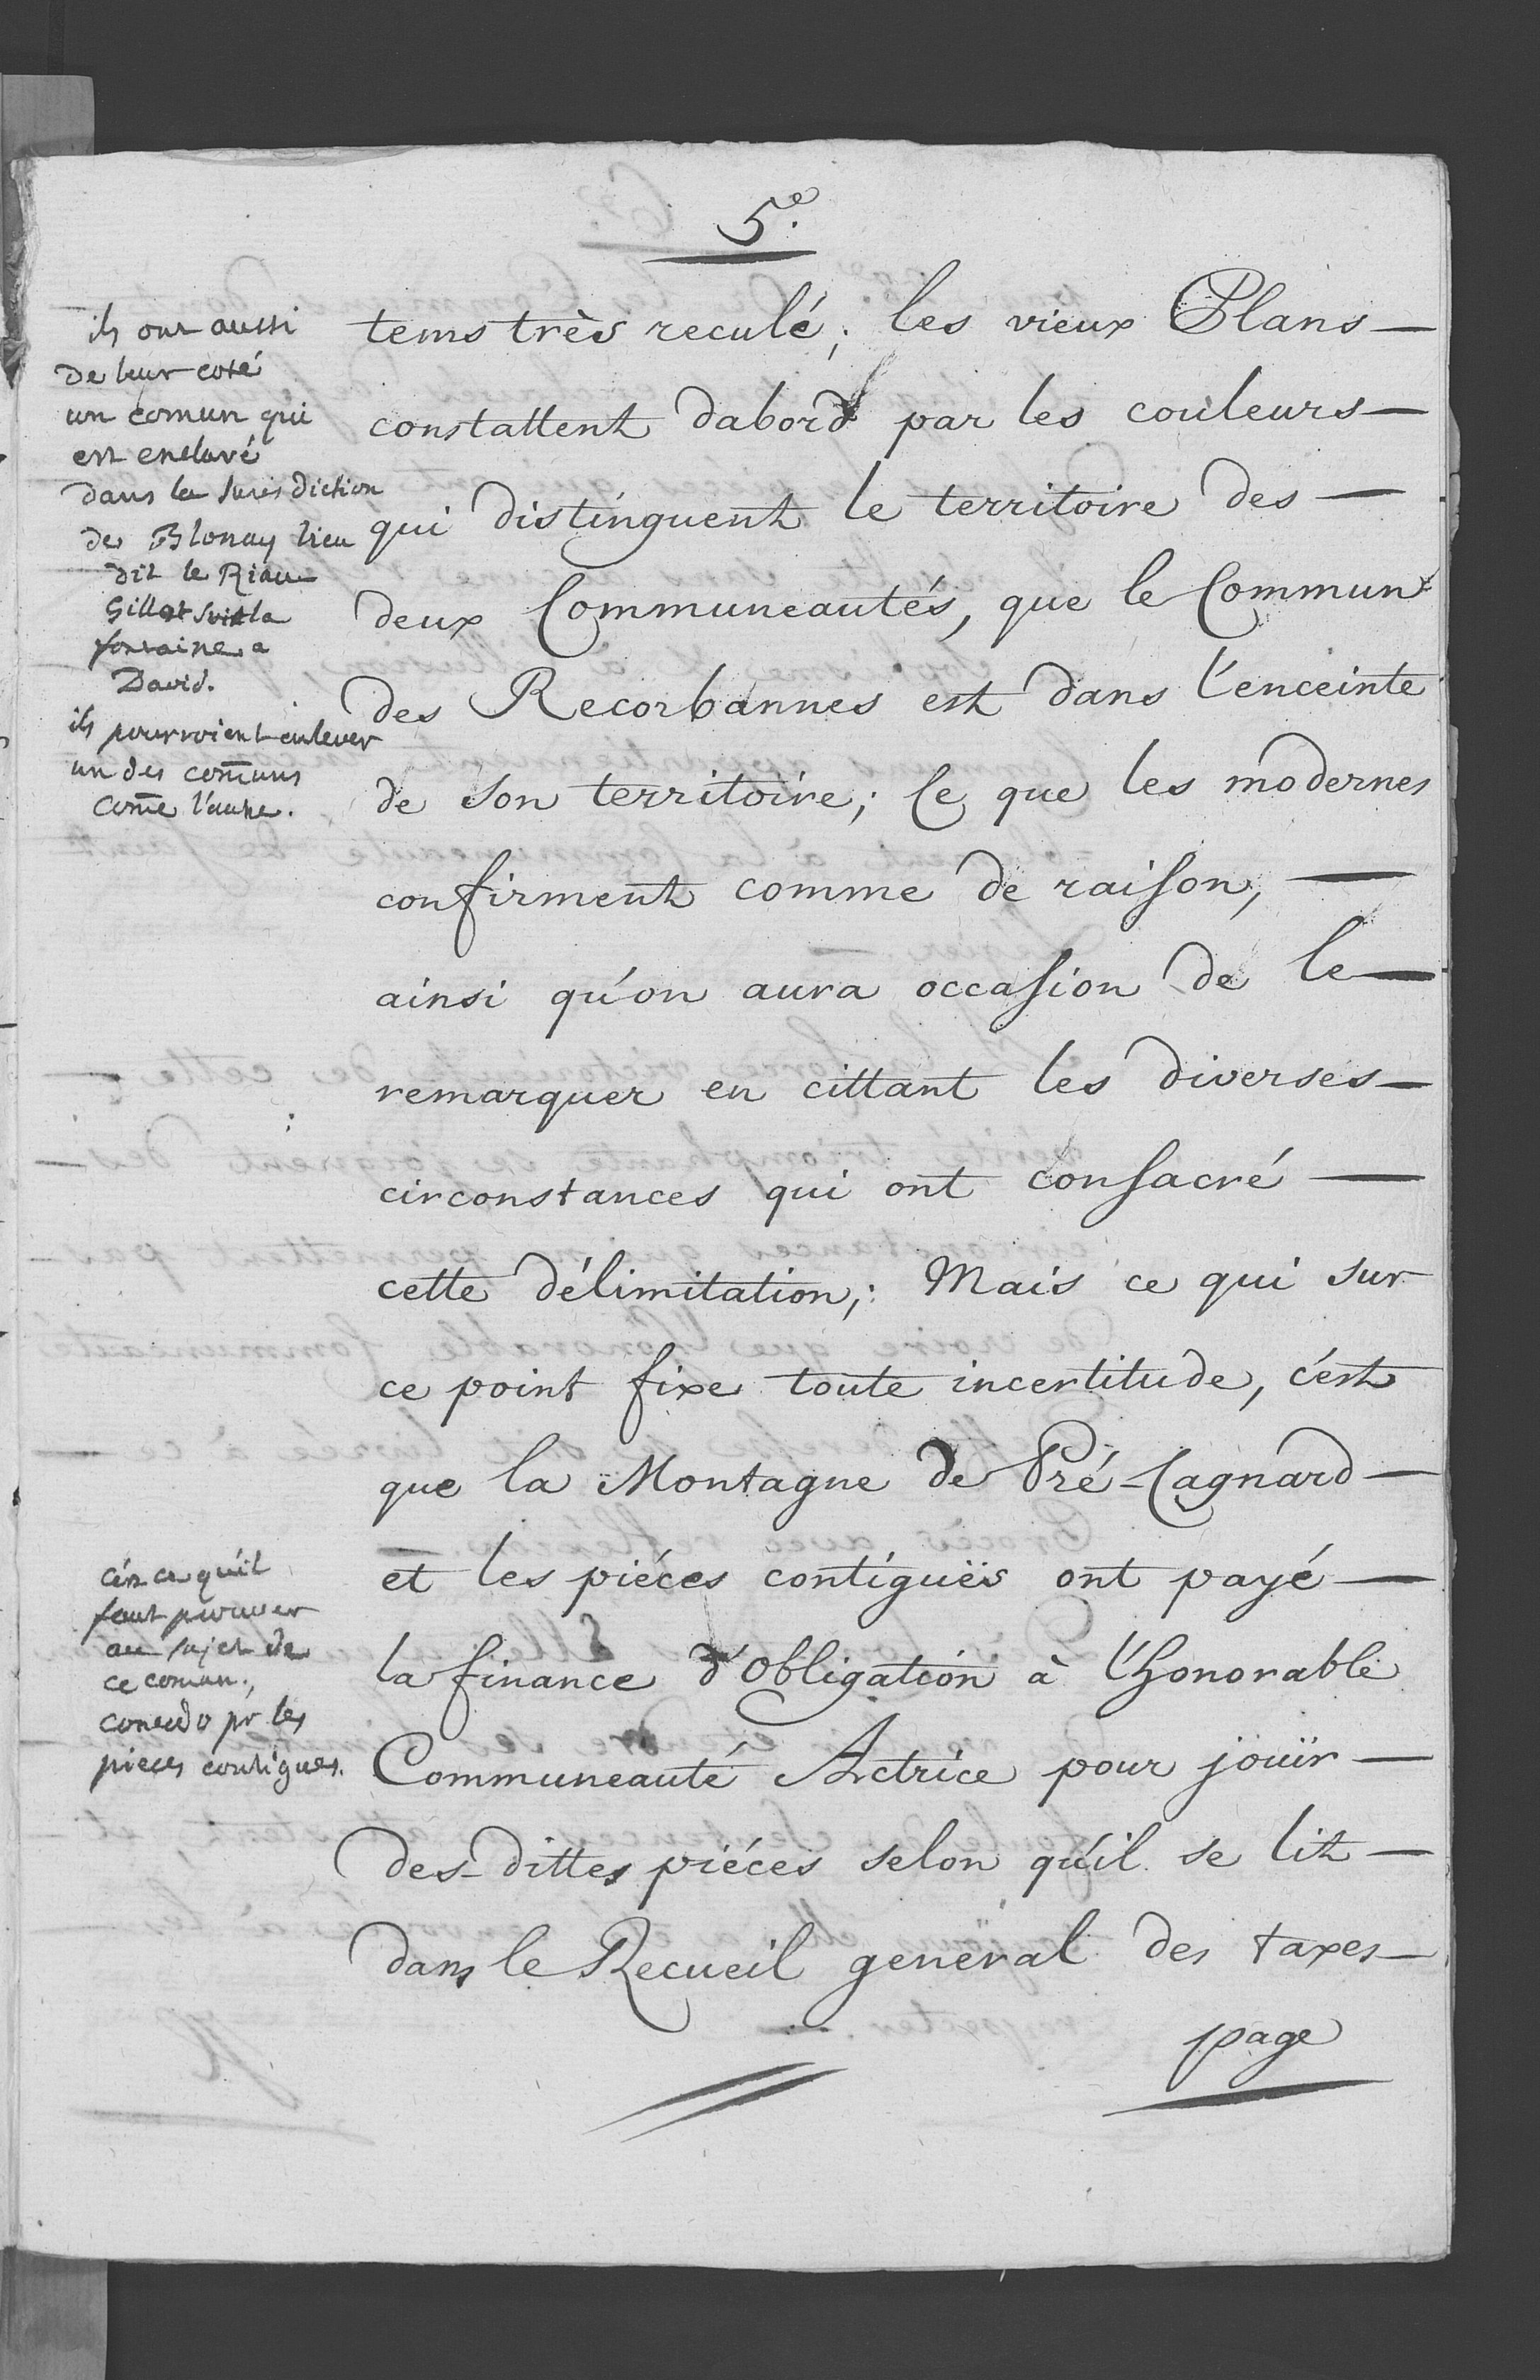 5.e
ils ont aussi
de leur coté
un comun qui
est enclavé
dans la Jurisdiction
de Blonay lieu
dit le Riau
Gillet
fontaine a
David.
ils pourroient enlever
un des comuns
come l'autre.
tems très reculé; les vieux Plans
constattent dabord par les couleurs
qui distinguent le territoire des
deux Communeautés, que le Commun
des Recorbannes est dans l'enceinte
de son territoire; Ce que les modernes
confirment comme de raison,
ainsi qu'on aura occasion de le
remarquer en cittant les diverses
circonstances qui ont consacré
cette délimitation; Mais ce qui sur
ce point fixe toute incertitude, c'est
que la Montagne de Pré-Cagnard
et les piéces contiguës ont payé
la finance d'Obligation à l'honorable
Communeauté Actrice pour jouïr
des-dittes piéces selon qu'il se lit
dans le Recueil general des taxes
page
c'est ce qu'il
faut prouver
au sujet de
ce comun.,
pr les
pieces contigues.